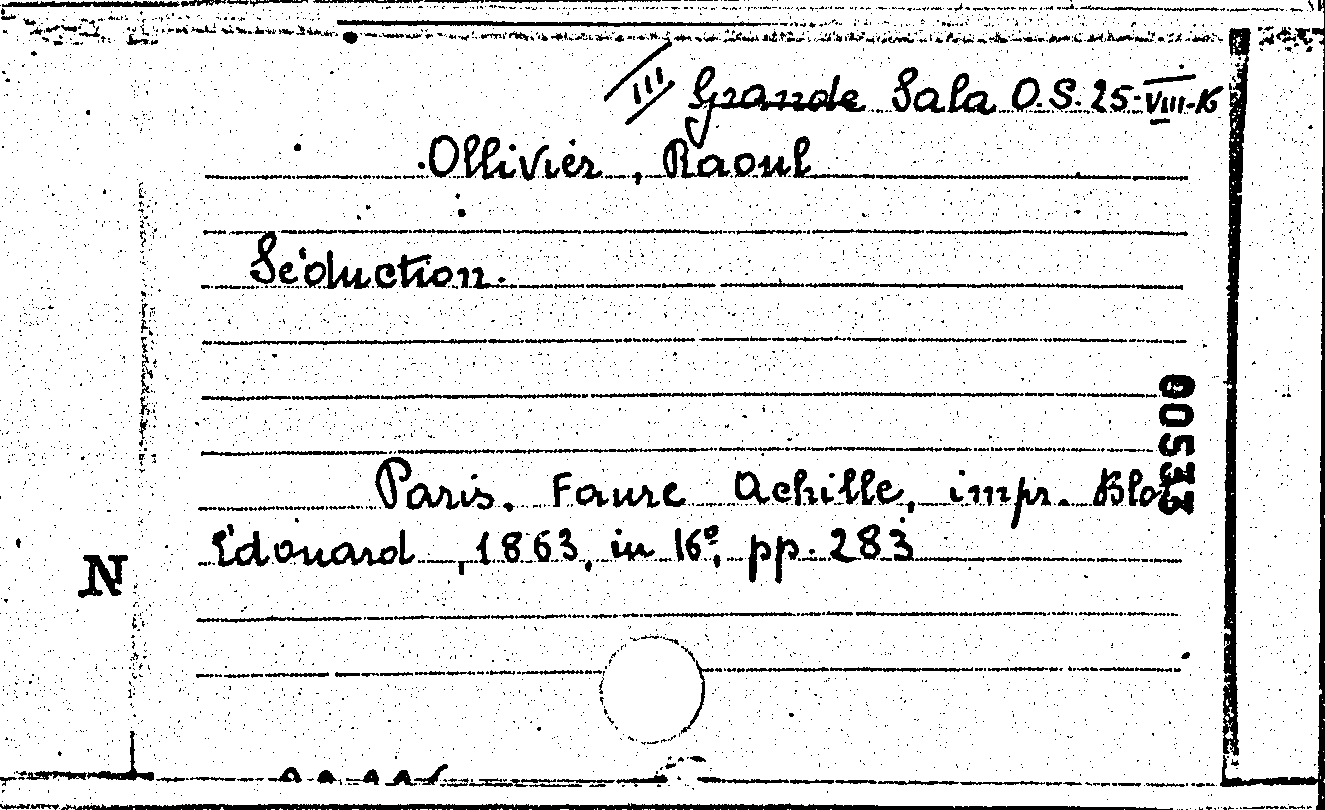 III Grande Sala O.S. 25-VIII-16
Ollivier, Raoul
Séduction.
Paris. Faure Achille, impr. Blot
Edouard, 1863, in 16º, pp. 283
N